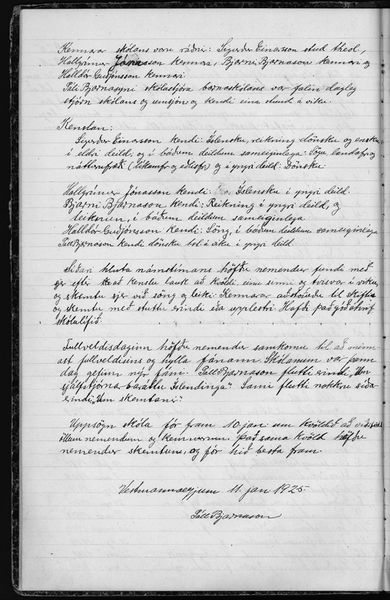 Kennarar skólans voru ráðnir: Sigurður Einarsson stud theol,
Hallgrímur Jónasson kennari, Bjarni Bjarnason kennari og
Halldór Guðjónsson kennari
Páli Bjarnasyni skólastjóra barnaskólans var falin dagleg
stjórn skólans og umsjón og kendi eina stund á viku.
Kenslan:
Sigurður Einarsson kendi: Íslensku, reikning dönsku og ensku
í eldri deild, og í báðum deildum sameiginlega: Sögu landafræði
náttúrufræði og í yngri deild: Dönsku.
Hallgrímur Jónasson kendi: Íslensku í yngri deild
Bjarni Bjarnason kendi: Reikning í yngri deild, og
leikfimi, í báðum deildum sameiginlega
Halldór Guðjónsson kendi: Söng, í báðum deildum sameiginlega
Páll Bjarnason kendi dönsku í yngri deild
Síðari hluta námstímans höfðu nemendur fundi með
sér eftir að kenslu lauk að kvöldi einu sinni og tvisvar í viku
og skemtu sjer við söng og leiki. Kennarar aðstoðuðu til skiftis
og skemtu með stuttu erindi eða upplestri. Hafði það góð áhrif á
skólalífið.
Fullveldisdaginn höfðu nemendur samkomu til að minn-
ast fullveldisins og hylla fánann. Skólanum var þann
dag gefinn nýr fáni. Páll Bjarnason flutti erindi, "Um
sjálfstjórnarbaráttu Íslendinga". Sami flutti nokkru síðar
erindi, "Um skemtanir".
Uppsögn skóla fór fram 10 jan um kvöldið að viðstöddum
öllum nemendum og kennurum. Það sama kvöld höfðu
nemendur skemtun, og fór hið besta fram.
Vestmannaeyjum 11. jan 1925
Páll Bjarnason